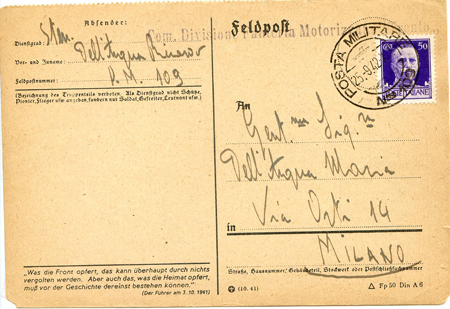 Absender:
Dienstgrad:
Vor- und Zuname: Dell'Acqua
Feldpostnummer: P.M. 109
(Bezeichnung des Truppenteils verboten. Als Dienstgrad nicht Schütze,
Pionier, Flieger usw angeben, sondern nur Soldat, Gefreiter, Leutnant usw.)
"Was die Front opfert, das kann überhaupt durch nichts
vergolten werden. Aber auch das, was die Heimat opfert,
muß vor der Geschichte dereinst bestehen können."
(Der Führer am 3. 10. 1941)
Com. Divisione Motoriz
Feldpost
POSTA MILITARE
50
ITALIANE
An
Gent.ma Sig.na
Dell'Acqua Maria
in Via Osti 14
MILANO
Straße, Hausnummer, Gebäudeteil, Stockwerk oder Postschließfachnummer
(10. 41)
Fp 50 Din A 6